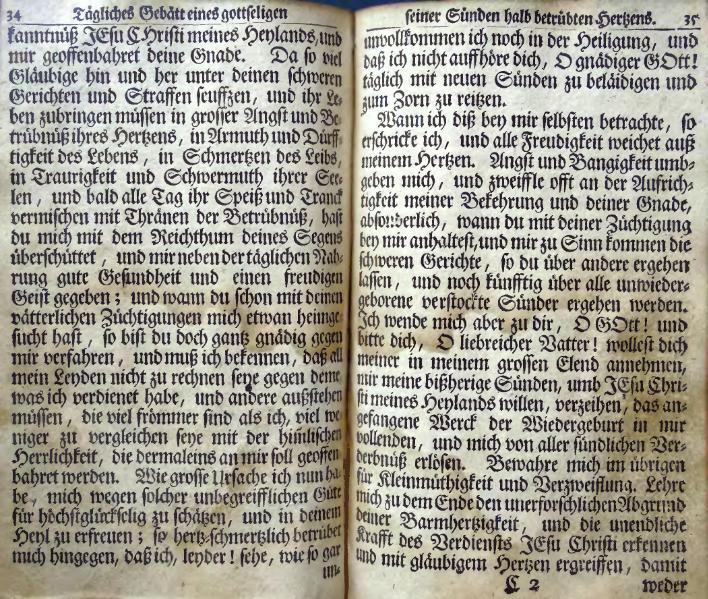 34 Tägliches Gebätt eines gottseligen
kanntnüß JEsu CHristi meines Heylands, und
mir geoffenbahret deine Gnade. Da so viel
Gläubige hin und her unter deinen schweren
Gerichten und Straffen seuffzen, und ihr Le-
ben zubringen müssen in grosser Angst und Be-
trübnüß ihres Hertzens, in Armuth und Dürff-
tigkeit des Lebens, in Schmertzen des Leibs,
in Traurigkeit und Schwermuth ihrer See-
len, und bald alle Tag ihr Speiß und Tranck
vermischen mit Thränen der Betrübnüß, hast
du mich mit dem Reichthum deines Segens
überschüttet, und mir neben der täglichen Nah-
rung gute Gesundheit und einen freudigen
Geist gegeben; und wann du schon mit deinen
vätterlichen Züchtigungen mich etwan heimge-
sucht hast, so bist du doch gantz gnädig gegen
mir verfahren, und muß ich bekennen, daß all
mein Leyden nicht zu rechnen seye gegen deme,
was ich verdienet habe, und andere außstehen
müssen, die viel frömmer sind als ich, viel we-
niger zu vergleichen seye mit der him̃lischen
Herrlichkeit, die dermaleins an mir soll geoffen-
bahret werden. Wie grosse Ursache ich nun ha-
be, mich wegen solcher unbegreifflichen Güte
für höchstglückselig zu schätzen, und in deinem
Heyl zu erfreuen; so hertz-schmertzlich betrübet
mich hingegen, daß ich, leyder! sehe, wie so gar
un-
seiner Sünden halb betrübten Hertzens. 35
unvollkommen ich noch in der Heiligung, und
daß ich nicht auffhöre dich, O gnädiger GOtt!
täglich mit neuen Sünden zu beläidigen und
zum Zorn zu reitzen.
Wann ich diß bey mir selbsten betrachte, so
erschricke ich, und alle Freudigkeit weichet auß
meinem Hertzen. Angst und Bangigkeit umb-
geben mich, und zweiffle offt an der Aufrich-
tigkeit meiner Bekehrung und deiner Gnade,
absonderlich, wann du mit deiner Züchtigung
bey mir anhaltest, und mir zu Sinn kommen die
schweren Gerichte, so du über andere ergehen
lassen, und noch künfftig über alle unwieder-
geborene verstockte Sünder ergehen werden.
Ich wende mich aber zu dir, O GOtt! und
bitte dich, O liebreicher Vatter! wollest dich
meiner in meinem grossen Elend annehmen,
mir meine bißherige Sünden, umb JEsu Chri-
sti meines Heylands willen, verzeihen, das an-
gefangene Werck der Wiedergeburt in mir
vollenden, und mich von aller sündlichen Ver-
derbnüß erlösen. Bewahre mich im übrigen
für Kleinmüthigkeit und Verzweiflung. Lehre
mich zu dem Ende den unerforschlichen Abgrund
deiner Barmhertzigkeit, und die unendliche
Krafft des Verdiensts JEsu Christi erkennen
und mit gläubigem Hertzen ergreiffen, damit
C 2 weder